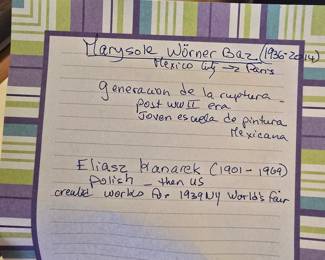 Marysole Wörner Baz (1936-2014)
Mexico City → Paris
generacion de la ruptura -
post WW II era
Joven escuela de pintura
Mexicana
Eliasz Kanarek (1901-1969)
polish - then US
created works for 1939 NY World's Fair